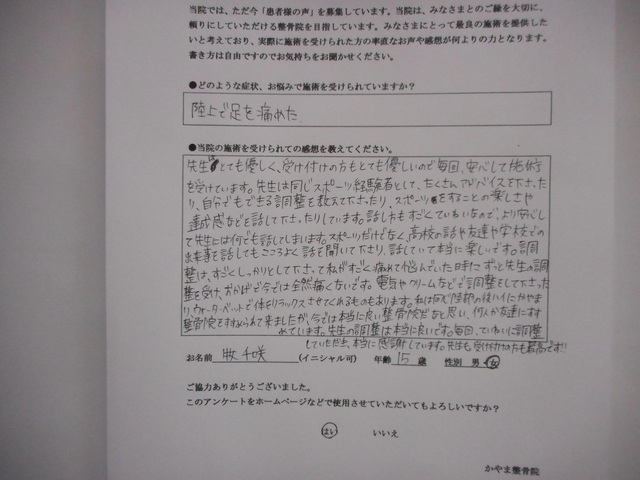 当院では、ただ今「患者様の声」を募集しています。当院は、みなさまとのご縁を大切に、
頼りにしていただける整骨院を目指しています。みなさまにとって最良の施術を提供した
いと考えており、実際に施術を受けられた方の率直なお声や感想が何よりの力となります。
書き方は自由ですのでお気持ちをお聞かせください。
●どのような症状、お悩みで施術を受けられていますか？
陸上で足を痛めた。
●当院の施術を受けられての感想を教えてください。
先生はとても優しく、受け付けの方もとても優しいので毎回、安心して施術
を受けています。先生は同じスポーツ経験者として、たくさんアドバイスを下さった
り、自分でもできる調整を教えて下さったり、スポーツをすることの楽しさや
達成感などを話して下さったりしています。話し方もすごくていねいなので、より安心し
て先生には何でも話してしまいます。スポーツだけでなく、高校の話や友達や学校での
出来事を話してもこころよく話を聞いて下さり、話していて本当に楽しいです。調
整は、すごくしっかりとして下さって私がすごく痛めて悩んでいた日も、ずっと先生の調
整を受け、おかげで今では全然痛くないです。電気やクリームなどで調整をして下さった
り、ウォーターベットで体をリラックスさせてくれるものもあります。私は同じ陸部の後ハイにかやま
整骨院をすすめられて来ましたが、今では本当に良い整骨院だなと思い、何人か友達にすす
めています。先生の調整は本当に良いです。毎回、ていねいに調整
していただき、本当に感謝しています。先生も受け付けの方も最高です!!
お名前 牧 千咲 （イニシャル可） 年齢 15 歳 性別 男・女
ご協力ありがとうございました。
このアンケートをホームページなどで使用させていただいてもよろしいですか？
はい いいえ
かやま整骨院